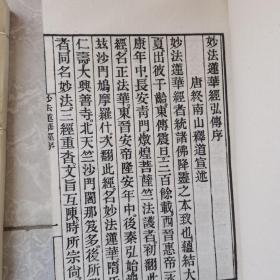 妙法蓮華經弘傳序
唐終南山釋道宣述
妙法蓮華經者統諸佛降靈之本致也蘊結大
夏出彼千齡東傳震旦三百餘載西晉惠帝永
康年中長安青門燉煌菩薩竺法護者初翻此
經名正法華東晉安帝隆安年中後秦弘始龜
茲沙門鳩摩羅什次翻此經名妙法蓮華隋氏
仁壽大興善寺北天竺沙門闍那笈多後所翻
者同名妙法三經重沓文旨互陳時所宗尚皆
妙法蓮華經序